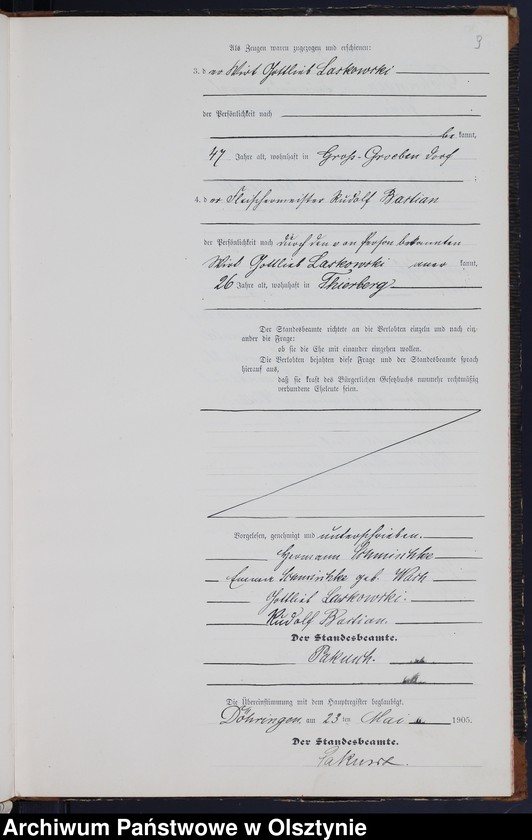 3
Als Zeugen waren zugezogen und erschienen:
3. der Wirt Gottlieb Laskowski
der Persönlichkeit nach
be kannt,
47 Jahre alt, wohnhaft in Gross-Groeben Dorf
;
4. der Fleischermeister Rudolf Bastian
der Persönlichkeit nach durch den von Person bekannten
Wirt Gottlieb Laskowski aner kannt,
26 Jahre alt, wohnhaft in Thierberg
Der Standesbeamte richtete an die Verlobten einzeln und nach ein-
ander die Frage:
ob sie die Ehe mit einander eingehen wollen.
Die Verlobten bejahten diese Frage und der Standesbeamte sprach
hierauf aus,
daß sie kraft des Bürgerlichen Gesetzbuchs nunmehr rechtmäßig
verbundene Eheleute seien.
Vorgelesen, genehmigt und unterschrieben.
Hermann Schmischke
Emma Schmischke geb. Wach
Gottlieb Laskowski.
Rudolf Bastian.
Der Standesbeamte.
Pakusch.
Die Übereinstimmung mit dem Hauptregister beglaubigt.
Döhringen, am 23 ten Mai 1905.
Der Standesbeamte.
Archiwum Państwowe w Olsztynie